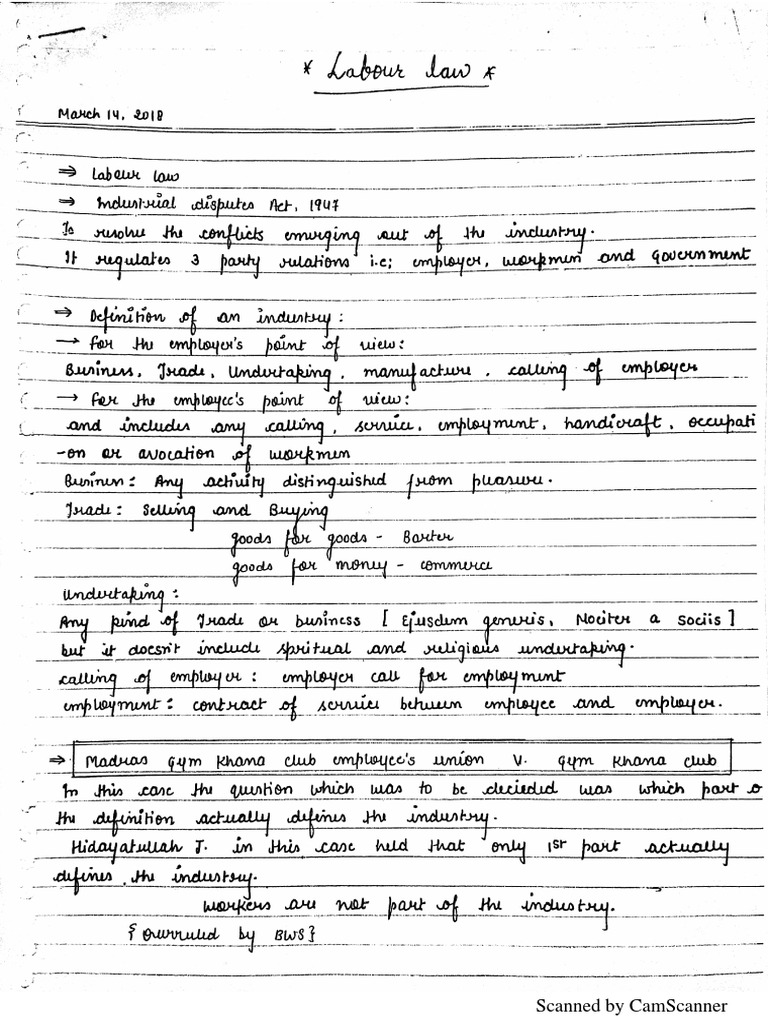 * Labour law *
March 14, 2018
⇒ Labour law
⇒ Industrial disputes Act, 1947
To resolve the conflicts emerging out of the industry.
It regulates 3 party relations i.e; employer, workmen and government
⇒ Definition of an industry :
→ For the employer's point of view :
Business, Trade, Undertaking, manufacture, calling of employer
→ For the employee's point of view :
and includes any calling, service, employment, handicraft, occupati
-on or avocation of workmen
Business : Any activity distinguished from pleasure.
Trade : Selling and Buying
goods for goods - Barter
goods for money - commerce
Undertaking :
Any kind of Trade or business [ Ejusdem generis, Nociter a sociis ]
but it doesn't include spritual and religious undertaking.
calling of employer : employer call for employment
employment : contract of service between employee and employer.
⇒ Madras gym khana club employee's union V. gym khana club
In this case the question which was to be decieded was which part o
the definition actually defines the industry.
Hidayatullah J. in this case held that only 1st part actually
defines the industry.
workers are not part of the industry.
{ overruled by BWS }
Scanned by CamScanner